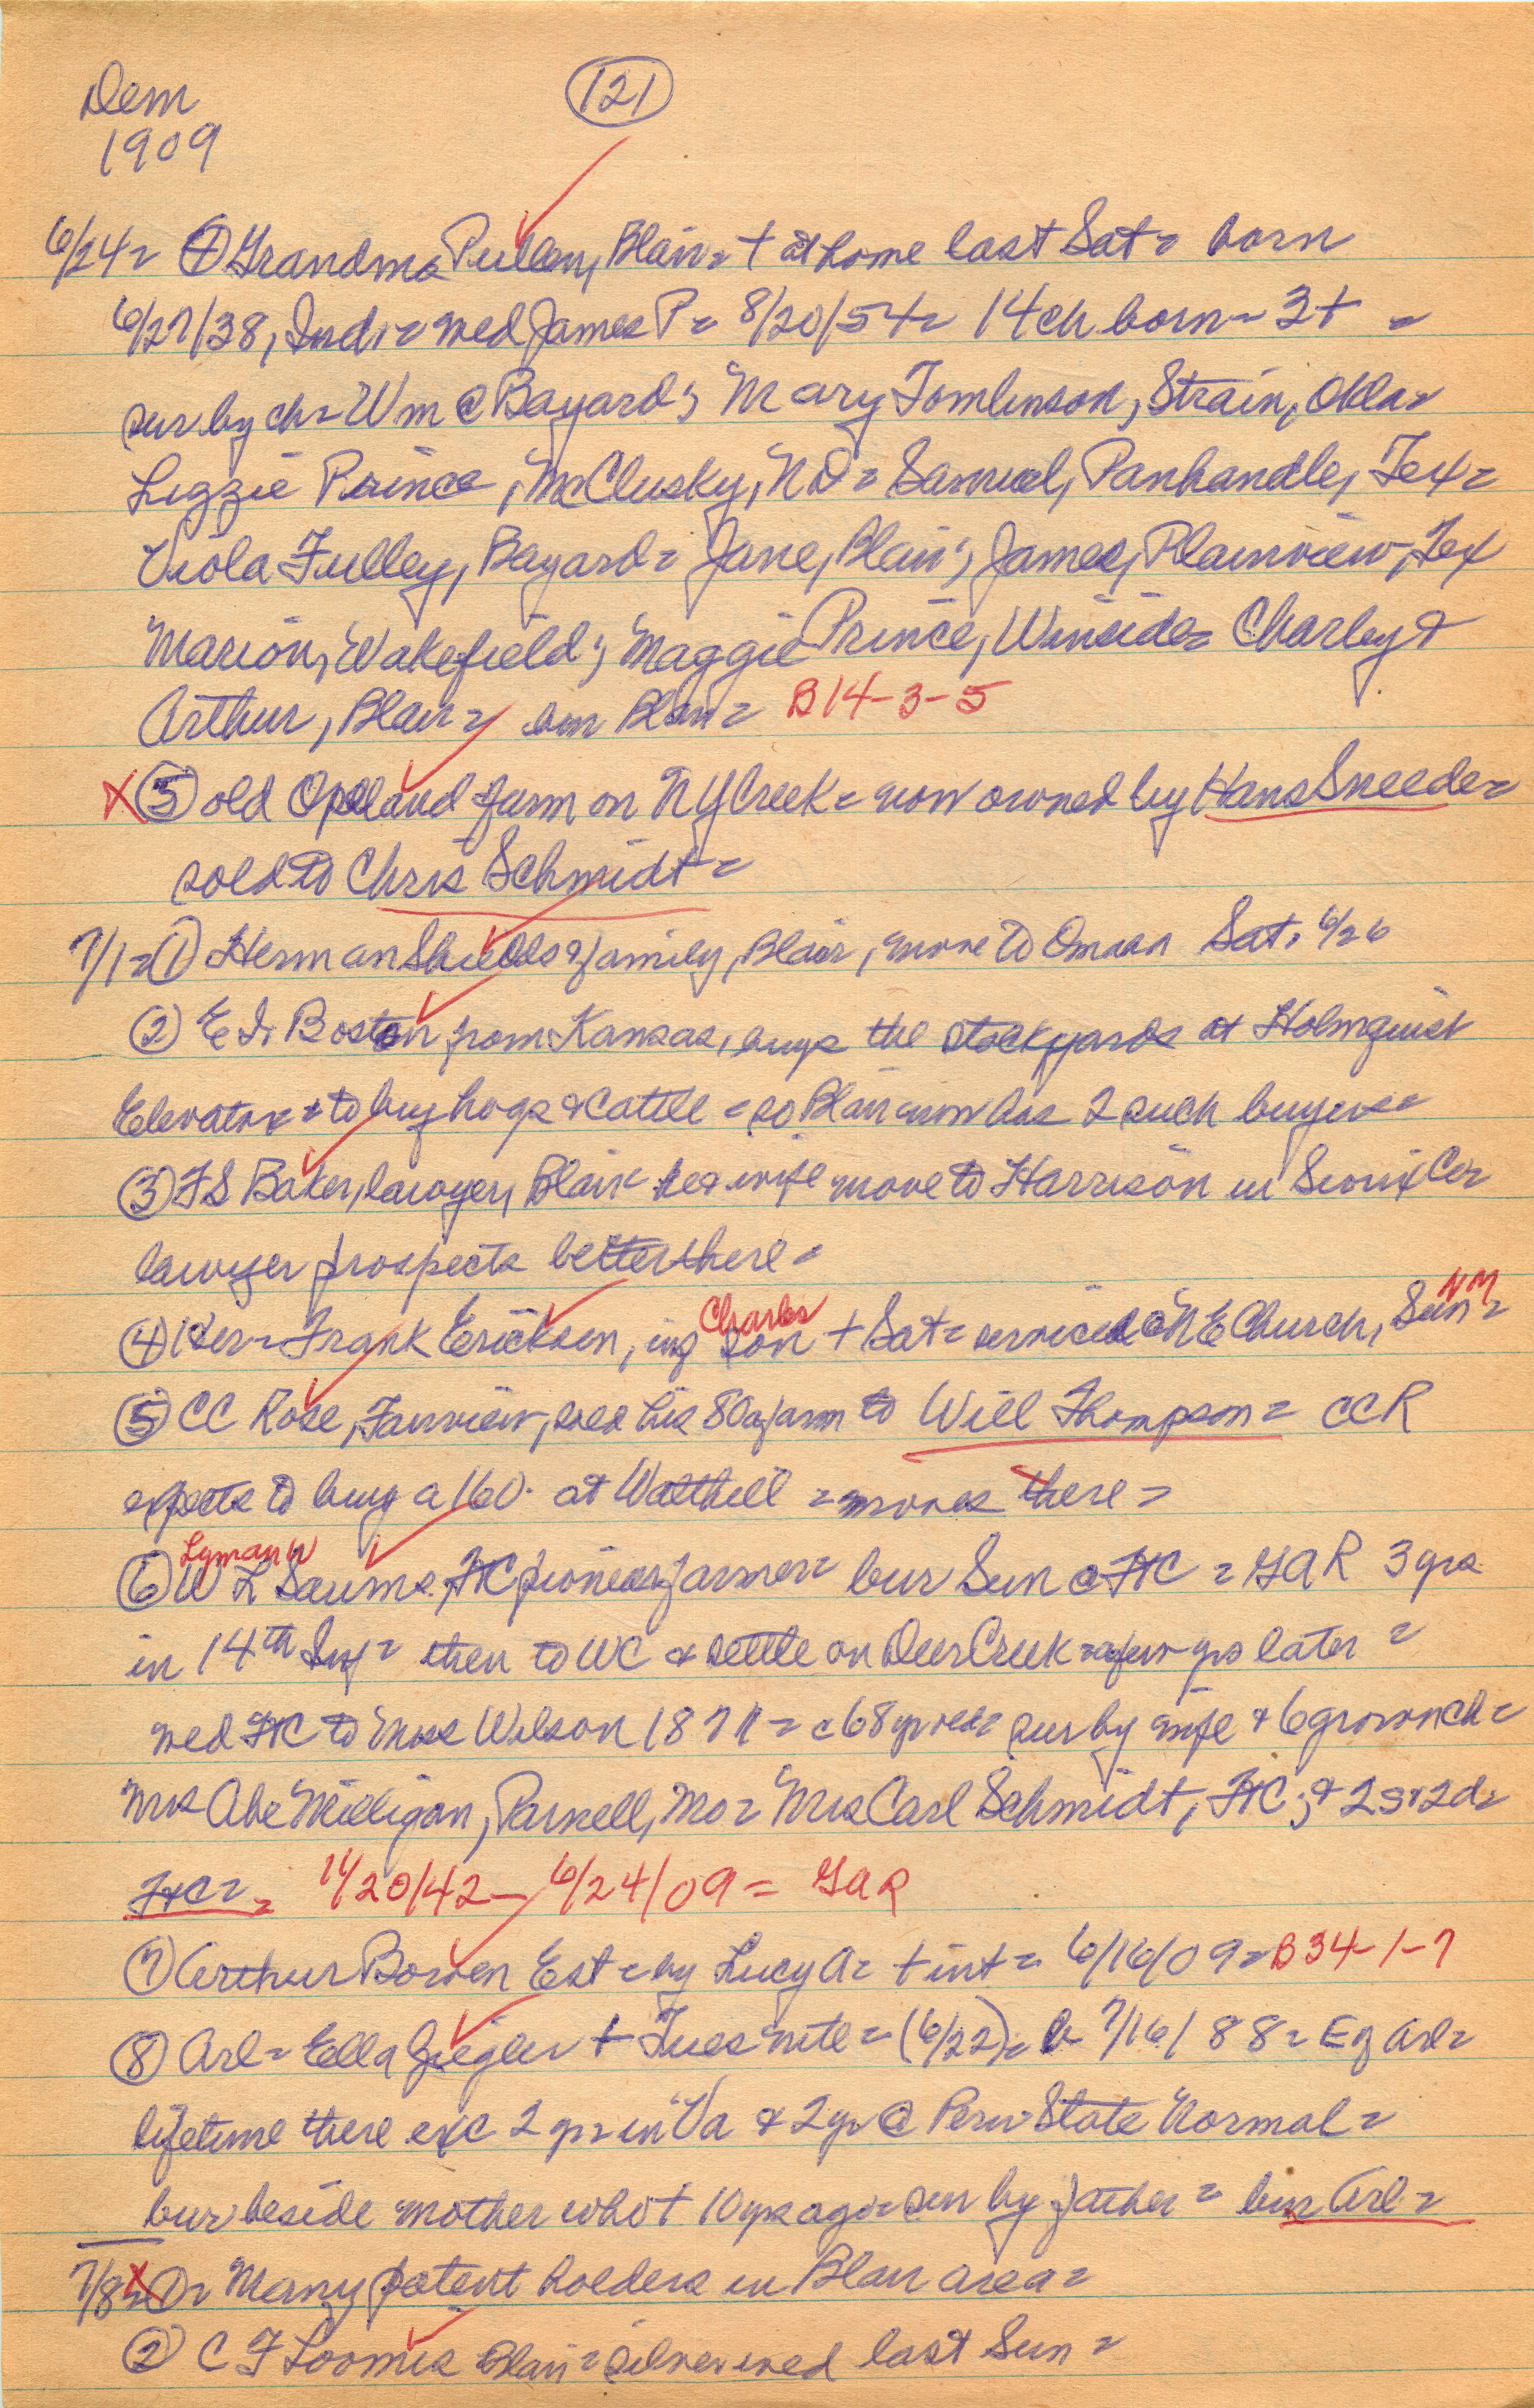 Dem
121
1909
6/24= ④ Grandma Pullen, Blair= + at home last Sat= born
6/27/38, Ind= wed James P= 8/20/54= 14 ch born- 3+ =
sur by ch= Wm @ Bayard; Mary Tomlinson, Strain, Okla=
Lizzie Prince, McClusky, ND= Samuel, Panhandle, Tex=
Viola Fulley, Bayard= Jane, Blair; James, Plainview, Tex
Marion, Wakefield; Maggie Prince, Winside= Charley &
Arthur, Blair= bur Blair= B14-3-5
X ⑤ old Opeland farm on NY Creek= now owned by Hans Sneede=
sold to Chris Schmidt=
7/1= ① Herman Shields & family, Blair, move to Omaha Sat. 6/26
② E I Boston from Kansas, buys the stockyards at Holmquist
Elevator= to buy hogs & cattle = so Blair now has 2 such buyers=
③ FS Baker, lawyer, Blair he & wife move to Harrison in Sioux Co=
lawyer prospects better there=
④ Her- Frank Ericksen, ing son Charles + Sat= services @ NE Church, Sun= NM
⑤ CC Rose, Fairview, sold his 80a farm to Will Thompson= CCR
expects to buy a 160. at Walthill = moves there=
⑥ W L Saums, Lyman W FtC pioneer farmer= bur Sun @ FtC = GAR 3 yrs
in 14th Inf= then to WC & settle on Deer Creek= a few yrs later =
wed FtC to Miss Wilson 1871= c68 yr old= sur by wife & 6 grown ch=
Mrs Abe Milligan, Parnell, Mo= Mrs Carl Schmidt, FtC; & 2s & 2d=
FtC= = 11/20/42- 6/24/09= GAR
⑦ Arthur Bowen Est= by Lucy A= + int= 6/16/09= B34-1-7
⑧ Arl= Ella Ziegler + Tues nite= (6/22)= b 7/16/88= E of Arl=
lifetime there exc 2 yrs in Va & 2 yr @ Peru State Normal=
bur beside mother who + 10 yrs ago= sur by father= bur Arl=
7/8= X ①= Many patent holders in Blair area=
② C F Loomis Blair= silver wed last Sun=